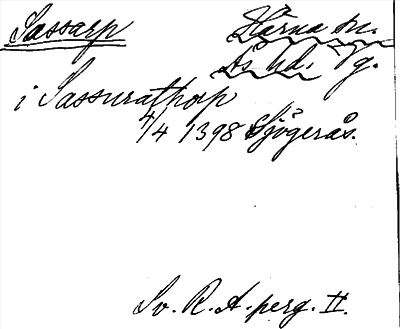 Sassarp
Härna sn.
Ås hd. Vg.
i Sassurathorp
4/4 1398 Sjögerås.
Sv. R. A. perg. II.